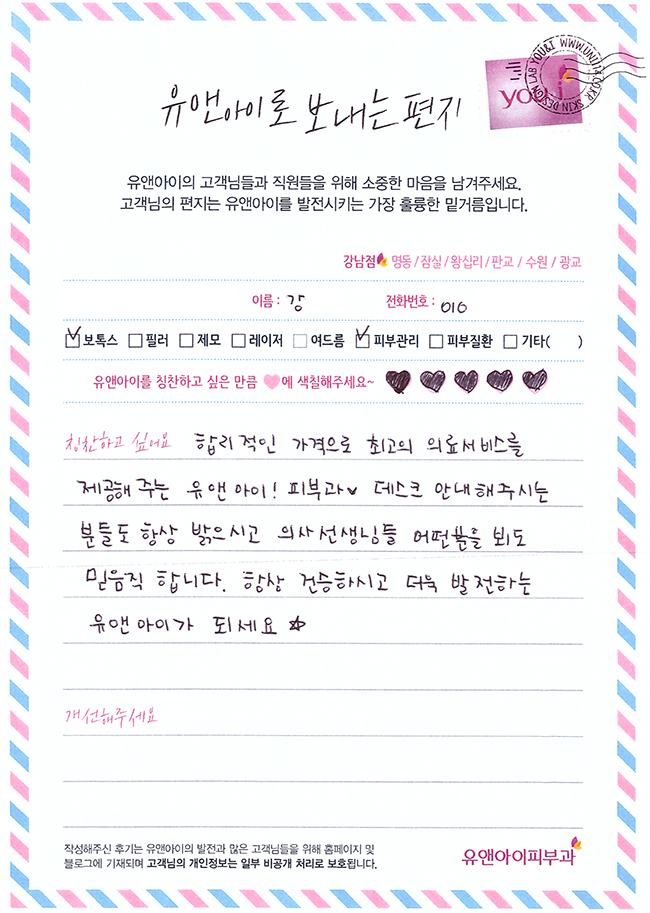 유앤아이로 보내는 편지
you&i
SKIN DESIGN LAB YOU&I WWW.UNI114.CO.KR
유앤아이의 고객님들과 직원들을 위해 소중한 마음을 남겨주세요.
고객님의 편지는 유앤아이를 발전시키는 가장 훌륭한 밑거름입니다.
강남점 명동/잠실/왕십리/판교/수원/광교
이름 : 강 전화번호 : 010
보톡스 필러 제모 레이저 여드름 피부관리 피부질환 기타( )
유앤아이를 칭찬하고 싶은 만큼 에 색칠해주세요~
칭찬하고 싶어요 합리적인 가격으로 최고의 의료서비스를
제공해 주는 유앤아이! 피부과♥ 데스크 안내해주시는
분들도 항상 밝으시고 의사선생님들 어떤분을 뵈도
믿음직 합니다. 항상 건승하시고 더욱 발전하는
유앤아이가 되세요 ☆
개선해주세요
작성해주신 후기는 유앤아이의 발전과 많은 고객님들을 위해 홈페이지 및
블로그에 기재되며 고객님의 개인정보는 일부 비공개 처리로 보호됩니다.
유앤아이피부과